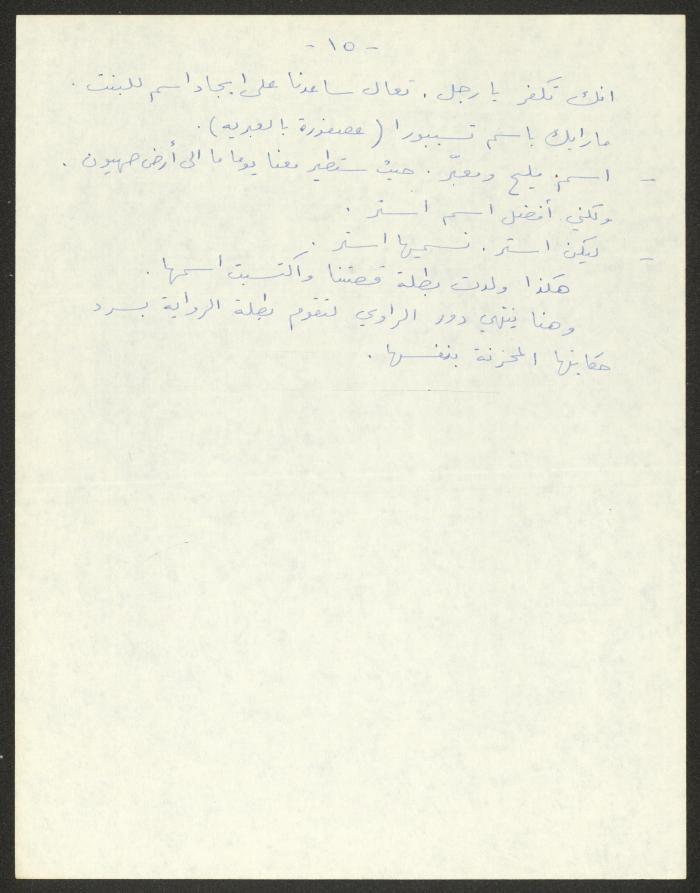 - ١٥ -
انك تكفر يا رجل. تعال ساعدنا على ايجاد اسم للبنت.
ما رايك باسم تسيبورا (عصفورة بالعبريه).
- اسم مليح ومعبّر. حيث ستطير معنا يوما ما الى أرض صهيون.
ولكني أفضل اسم استر.
- ليكن استر. نسميها استر.
هكذا ولدت بطلة قصتنا واكتسبت اسمها.
وهنا ينتهي دور الراوي لتقوم بطلة الرواية بسرد
حكايتها المحزنة بنفسها.